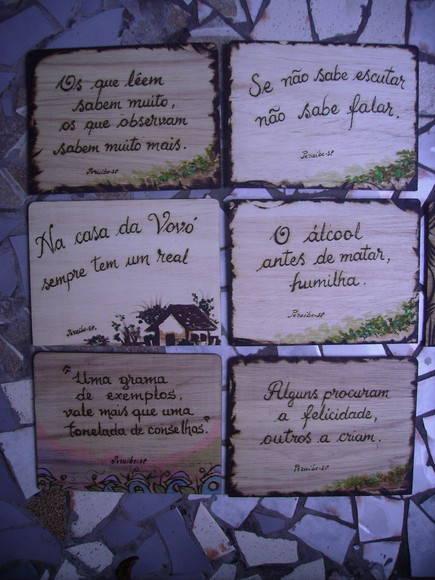 Os que lêem
sabem muito,
os que observam
sabem muito mais.
Peruíbe-SP
Se não sabe escutar
não sabe falar.
Peruíbe-SP
Na casa da Vovó
sempre tem um real
Peruíbe-SP.
O álcool
antes de matar,
humilha.
Peruíbe-SP
"Uma grama
de exemplos,
vale mais que uma
tonelada de conselhos."
Peruíbe-SP
Alguns procuram
a felicidade,
outros a criam.
Peruíbe-SP